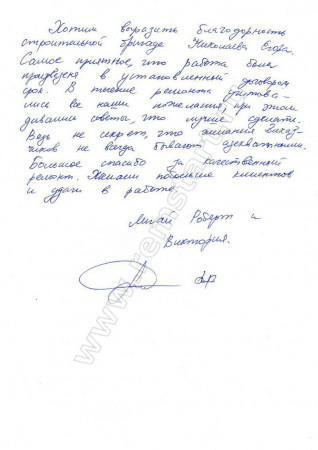 Хотим выразить благодарность
строительной бригаде Николаева Егора.
Самое приятное, что работа была
произведена в установленный договором
срок. В течение ремонта учитыва-
лись все наши пожелания, при этом
давались советы, что лучше сделать.
Ведь не секрет, что желания заказ-
чиков не всегда бывают адекватными.
Большое спасибо за качественный
ремонт. Желаем побольше клиентов
и удачи в работе.
Роберт и
Виктория.